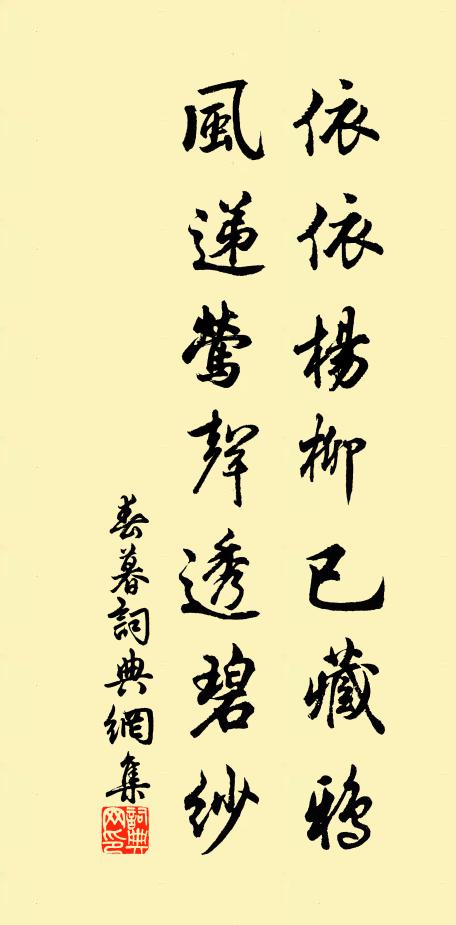 依依楊柳已藏鴉
風遞鶯聲透碧紗
春暮詞典網集
詞典網印